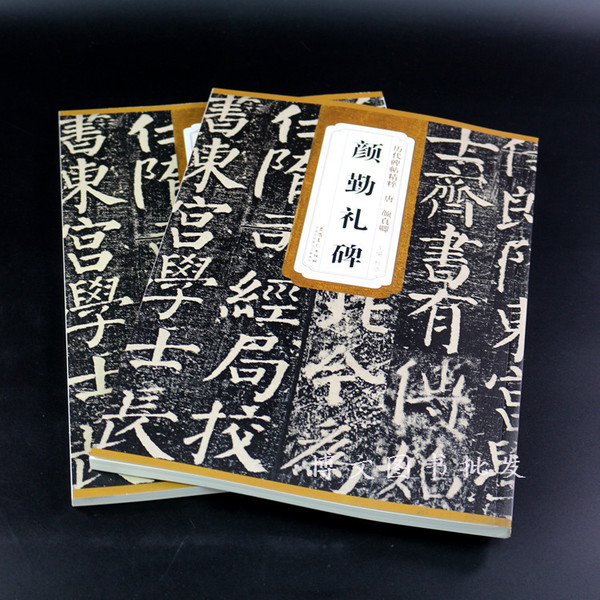 历代碑帖精粹 唐 颜真卿
颜勤礼碑
郎隋東宮
士齊書有傳
北
任隋司經局校
書東宮學士長
任隋
書東宮學士
博文图书批发